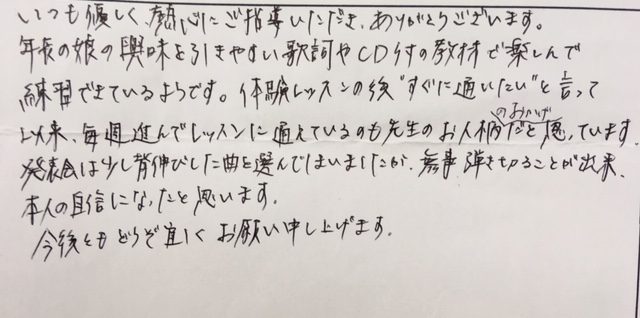 いつも優しく、熱心にご指導いただき、ありがとうございます。
年長の娘の興味を引きやすい歌詞やCD付の教材で楽しんで
練習できているようです。体験レッスンの後"すぐに通いたい"と言って
以来、毎週進んでレッスンに通えているのも先生のお人柄のおかげだと思っています。
発表会は少し背伸びした曲を選んでしまいましたが、無事弾ききることが出来、
本人の自信になったと思います。
今後ともどうぞ宜しくお願い申し上げます。